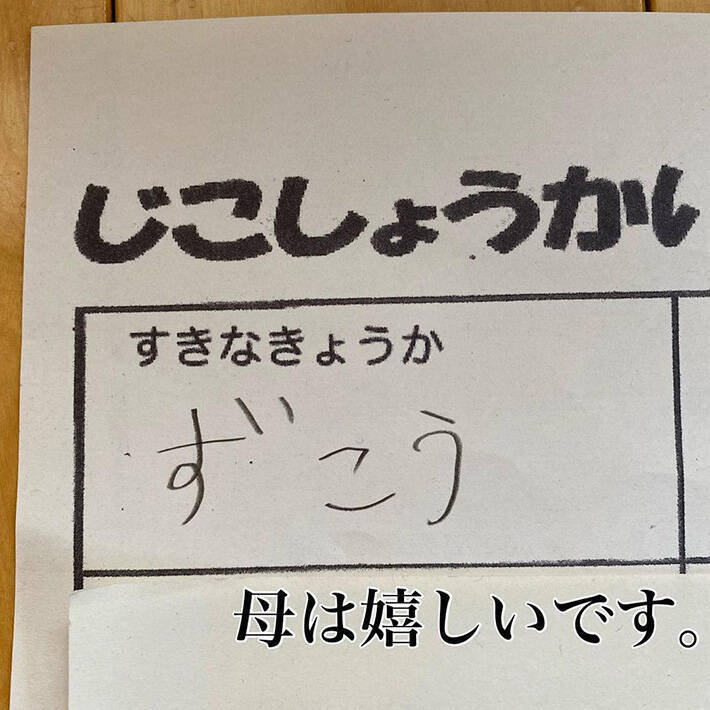 じこしょうかい
すきなきょうか
ずこう
母は嬉しいです。